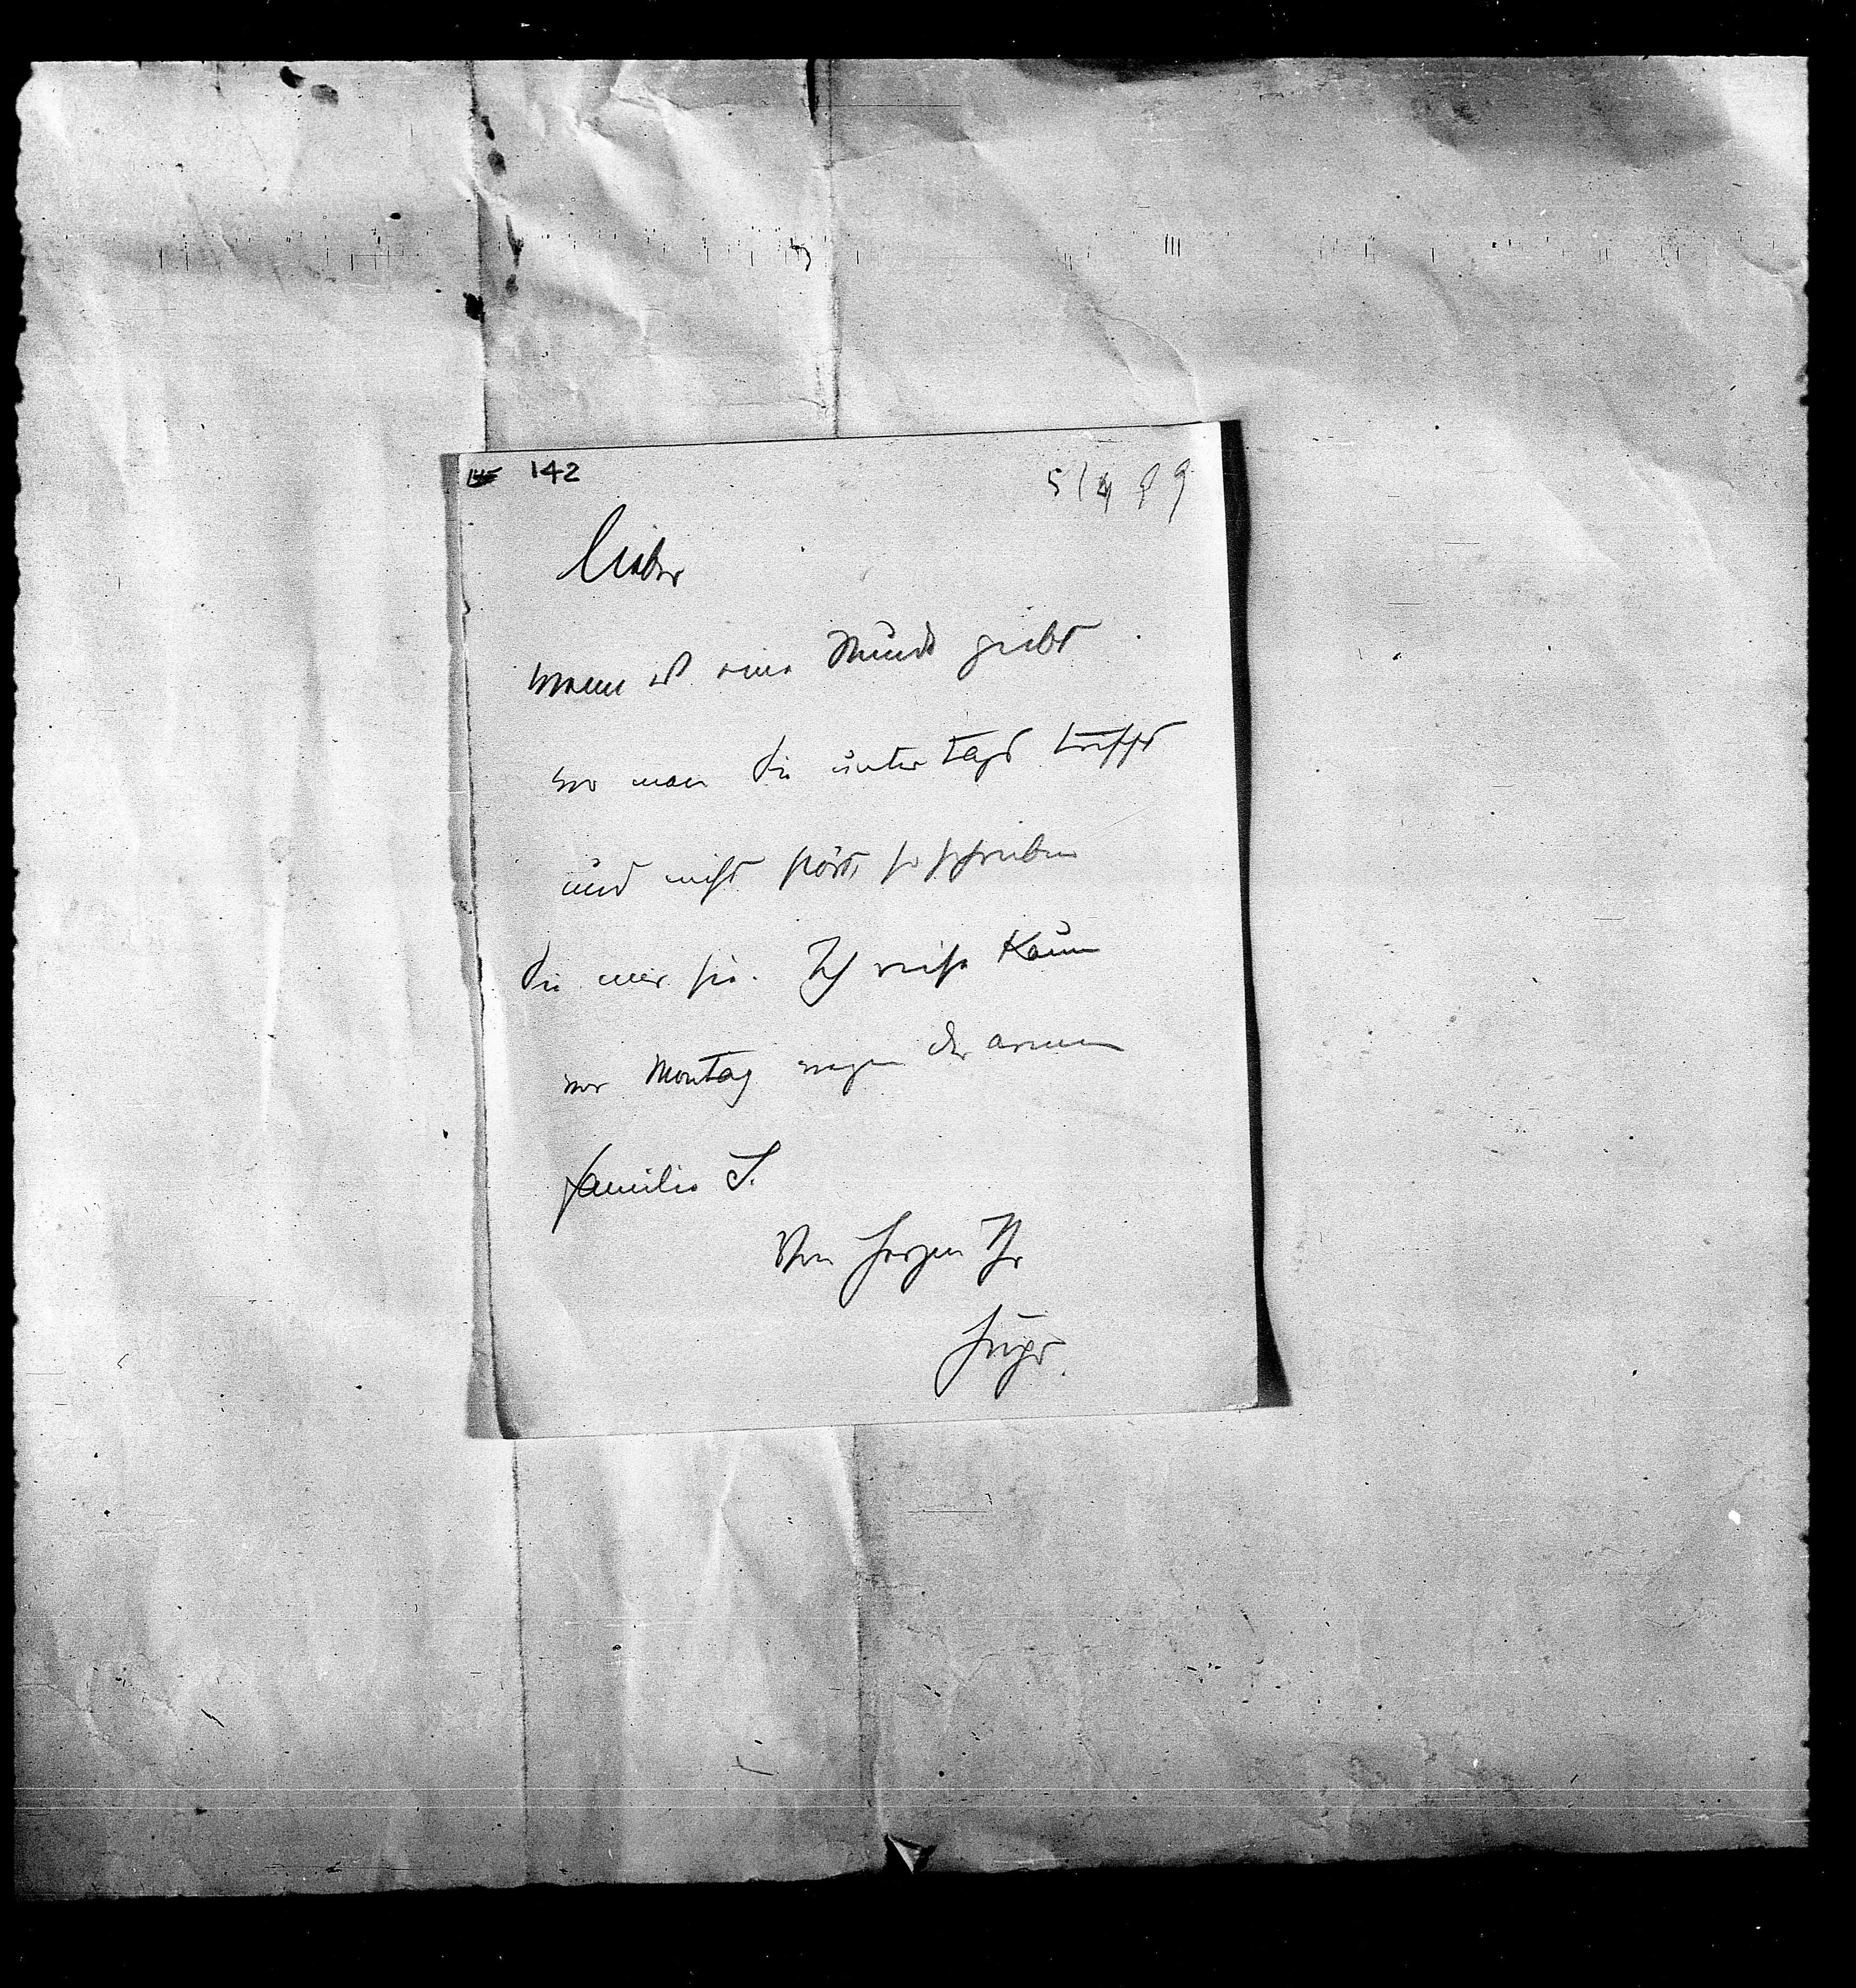 142
5/4 99
lieber
wenn es eine Stunde giebt
wo man Sie unter tags trifft
und nicht stört, so schreiben
Sie mir sie. Ich reise kaum
vor Montag wegen der armen
Familie S.
Von Herzen Ihr
Hugo.